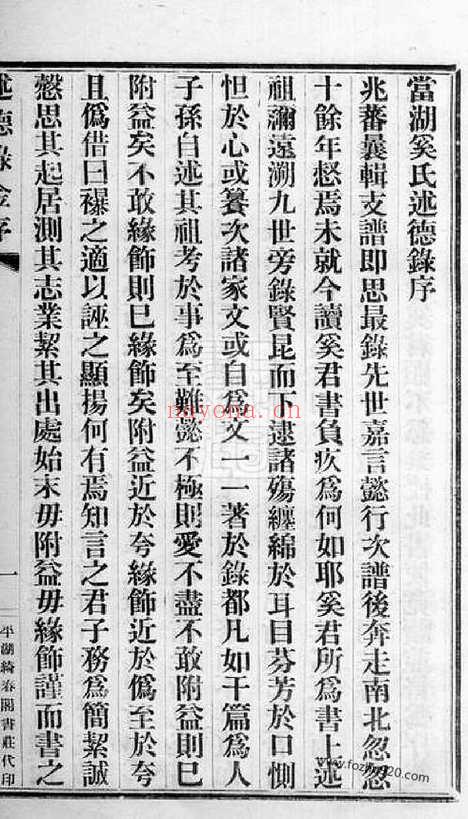 當湖奚氏述德錄序
兆蕃曩輯支譜即思最錄先世嘉言懿行次譜後奔走南北忽忽
十餘年愁焉未就今讀奚君書負疚為何如耶奚君所為書上述
祖禰遠溯九世旁錄賢昆而下逮諸殤纏綿於耳目芬芳於口惻
怛於心或纂次諸家文或自為文一一著於錄都凡如干篇為人
子孫自述其祖考於事為至難懿不極則愛不盡不敢附益則已
附益矣不敢緣飾則已緣飾矣附益近於夸緣飾近於偽至於夸
且偽借曰襮之適以誣之顯揚何有焉知言之君子務為簡絜誠
愨思其起居測其志業絜其出處始末毋附益毋緣飾謹而書之
述德錄 序
一
平湖綺春閣書莊代印
nayona.cn
www.fozhu920.com